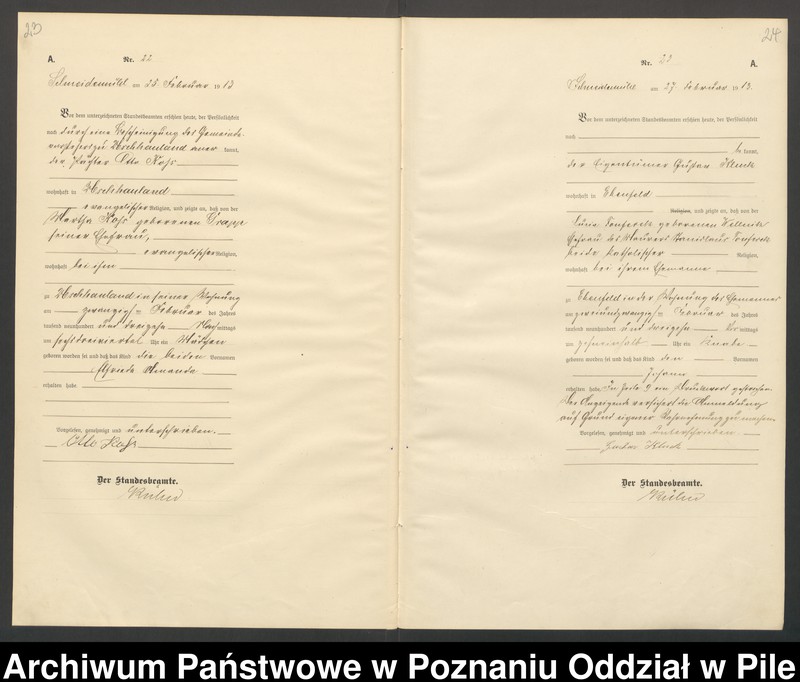 23
A.
Nr. 22
Schneidemühl am 25. Februar 1913
Vor dem unterzeichneten Standesbeamten erschien heute, der Persönlichkeit
nach durch eine Bescheinigung des Gemeinde-
kannt,
der Pächter Otto
wohnhaft in
evangelischer Religion, und zeigte an, daß von der
Martha geborenen
seiner Ehefrau,
evangelischer Religion,
wohnhaft bei ihm
zu in seiner Wohnung
am zwanzigsten Februar des Jahres
tausend neunhundert und dreizehn Nachmittags
um Uhr ein Mädchen
geboren worden sei und daß das Kind die beiden Vornamen
Elfriede Amanda
erhalten habe
Vorgelesen, genehmigt und unterschrieben.
Otto
Der Standesbeamte.
24
Nr. 23
A.
Schneidemühl am 27. Februar 1913.
Vor dem unterzeichneten Standesbeamten erschien heute, der Persönlichkeit
nach
be kannt,
der Eigentümer Gustav
wohnhaft in Ebenfeld
Religion, und zeigte an, daß von der
geborenen
Ehefrau des Maurers Stanislaus
beide katholischer Religion,
wohnhaft bei ihrem Ehemanne
zu Ebenfeld in der Wohnung des Ehemannes
am zweiundzwanzigsten Februar des Jahres
tausend neunhundert und dreizehn Vormittags
um Uhr ein Knabe
geboren worden sei und daß das Kind den Vornamen
Johann
erhalten habe. In Zeile 9 ein Druckwort gestrichen.
Der Anzeigende versichert die Anmeldung
auf Grund eigener zu machen.
Vorgelesen, genehmigt und unterschrieben
Gustav
Der Standesbeamte.
Archiwum Państwowe w Poznaniu Oddział w Pile